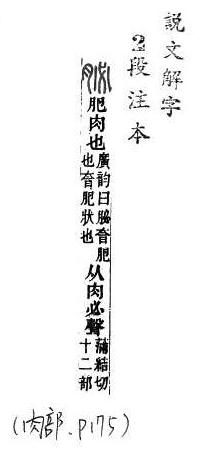 説文解字
段注本
肥肉也廣韵曰脇肻肥
也肻肥狀也从肉必聲蒲結切
十二部
(肉部.P175)